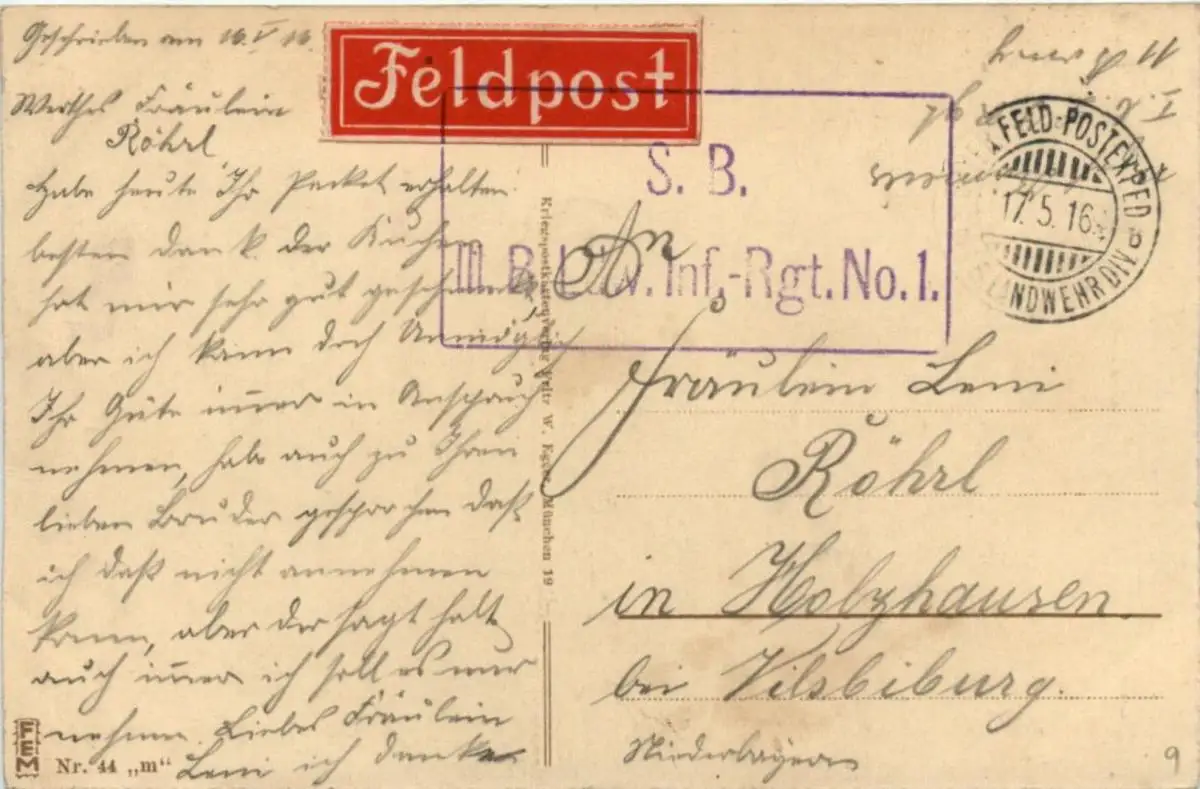 Geschrieben am 16.V.16.
Werthes Fräulein
Röhrl
Habe heute Ihr Packet erhalten
besten dank der Kuchen
hat mir sehr gut geschmeckt
aber ich kann doch Unmöglich
Ihr Güte immer in Anspruch
nehmen, habe auch zu Ihrem
lieben Bruder gesprochen daß
ich daß nicht annehmen
kann, aber der sagt halt
auch immer ich soll es nur
nehmen. Liebes Fräulein
Leni ich danke
Feldpost
S. B.
III. B. Ldw. Inf.-Rgt. No. 1.
FELD-POSTEXPED
17.5.16
LANDWEHRDIV.
An
Fräulein Leni
Röhrl
in Holzhausen
bei Vilsbiburg.
Niederbayern
Kriegspostkartenverlag München 19
FEM
Nr. 44 „m“
9